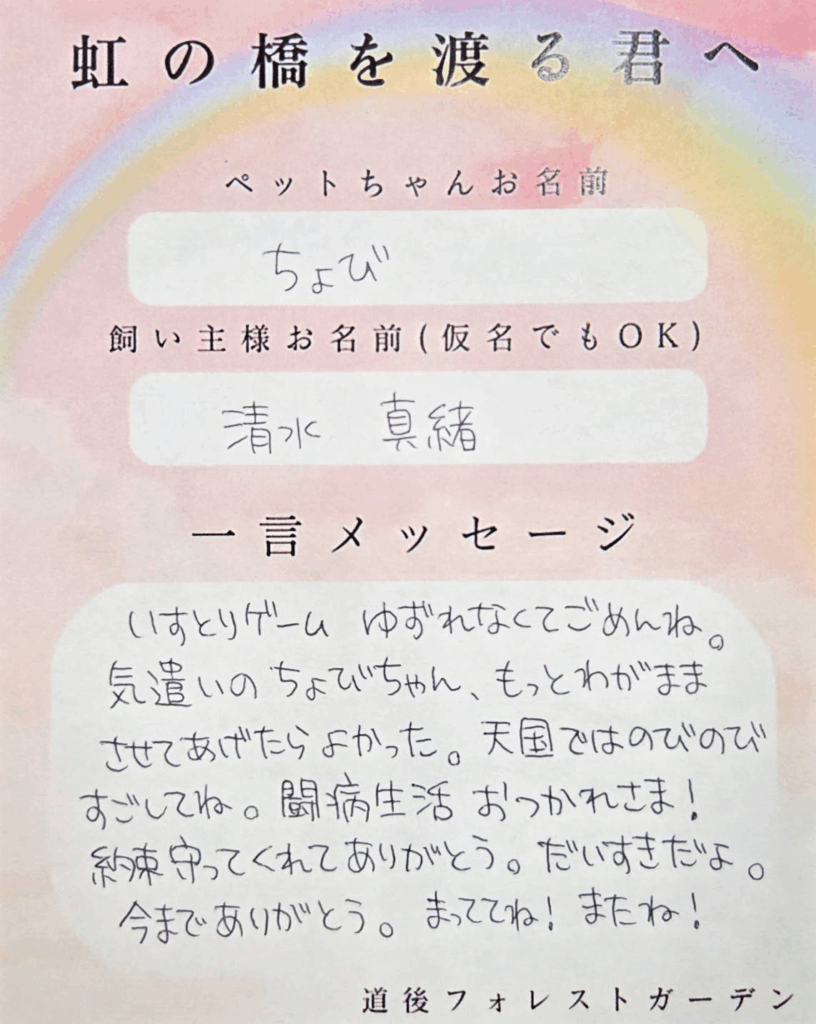 虹の橋を渡る君へ
ペットちゃんお名前
ちょび
飼い主様お名前(仮名でもOK)
清水 真緒
一言メッセージ
いすとりゲーム ゆずれなくてごめんね。
気遣いのちょびちゃん、もっとわがまま
させてあげたらよかった。天国ではのびのび
すごしてね。闘病生活 おつかれさま!
約束守ってくれてありがとう。だいすきだよ。
今までありがとう。まっててね!またね!
道後フォレストガーデン